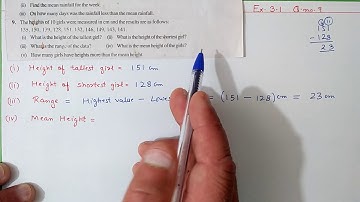 (ii) Find the mean rainfall for the week.
(iii) On how many days was the rainfall less than the mean rainfall.
9. The heights of 10 girls were measured in cm and the results are as follows:
135, 150, 139, 128, 151, 132, 146, 149, 143, 141.
(i) What is the height of the tallest girl? (ii) What is the height of the shortest girl?
(iii) What is the range of the data? (iv) What is the mean height of the girls?
(v) How many girls have heights more than the mean height.
Ex-3.1 Q.no-9
151
- 128
23
(i) Height of tallest girl = 151 cm
(ii) Height of shortest girl = 128 cm
(iii) Range = Highest value - Lowest = (151 - 128) cm = 23 cm
(iv) Mean Height =